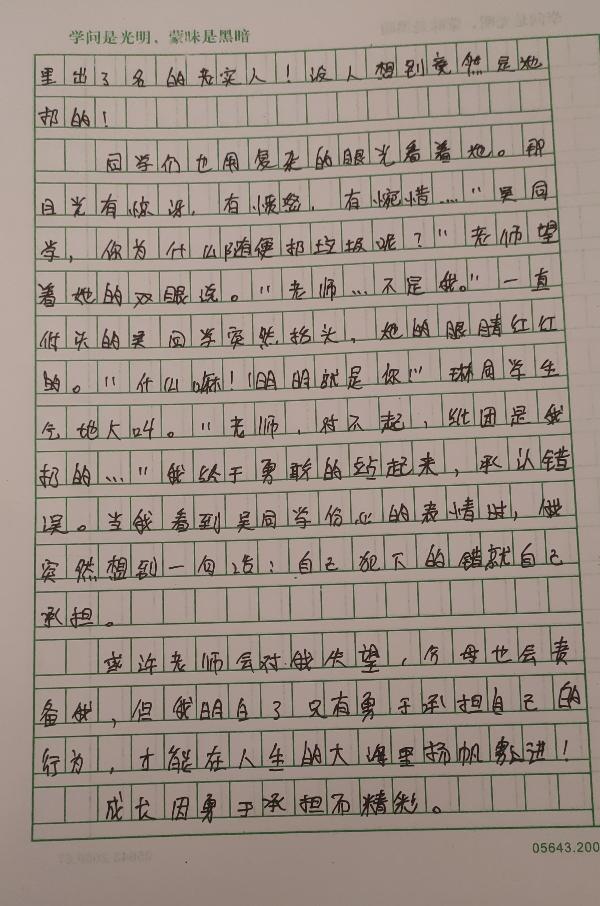 学问是光明，蒙昧是黑暗
里出了名的老实人！没人想到竟然是她
扔的！
同学们也用复杂的眼光看着她。那
目光有惊讶，有愤怒，有惋惜……"吴同
学，你为什么随便扔垃圾呢？"老师望
着她的双眼说。"老师…不是我。"一直
低头的吴同学突然抬头，她的眼睛红红
的。"什么嘛！明明就是你！"琳同学生
气地大叫。"老师，对不起，纸团是我
扔的…"我终于勇敢的站起来，承认错
误。当我看到吴同学伤心的表情时，我
突然想到一句话：自己犯下的错就自己
承担。
或许老师会对我失望，父母也会责
备我，但我明白了只有勇于承担自己的
行为，才能在人生的大海里扬帆前进！
成长因勇于承担而精彩。
05643.200